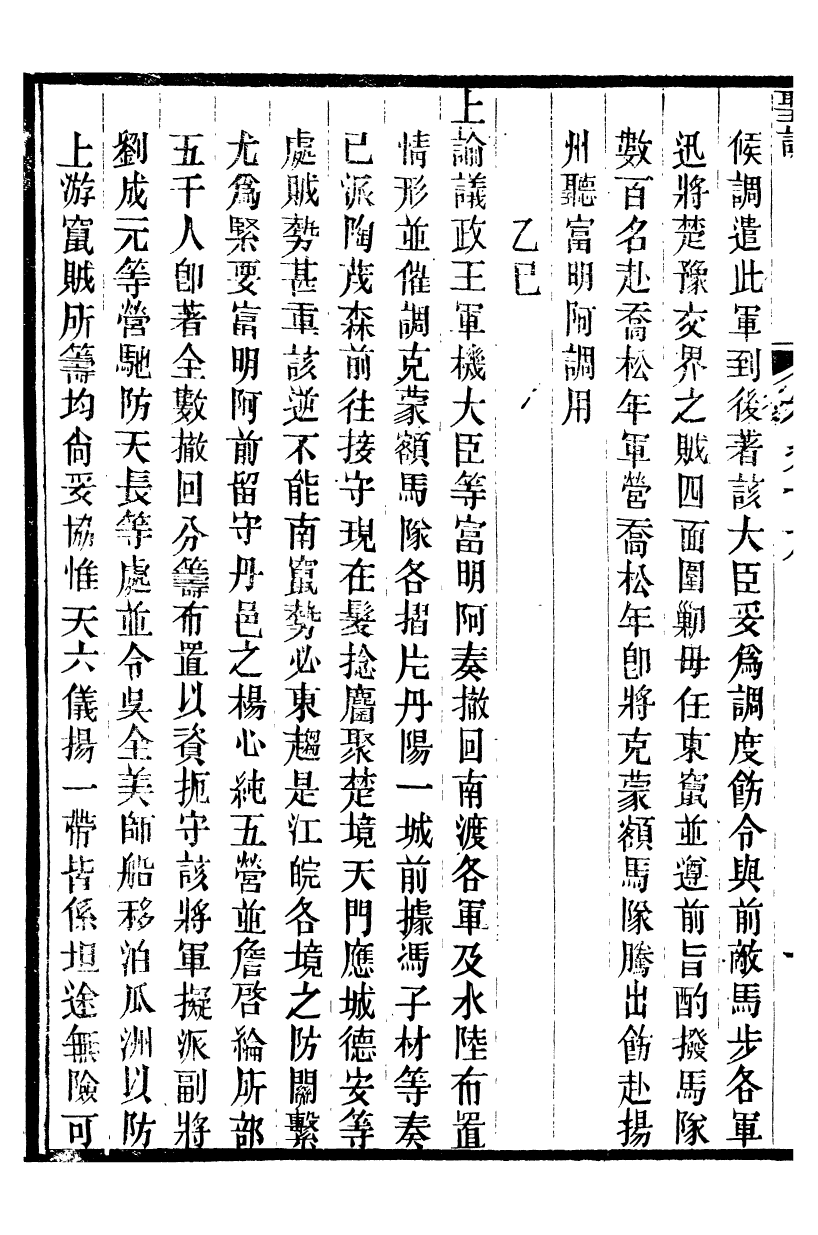 聖訓
候調遣此軍到後著該大臣妥為調度飭令與前敵馬步各軍
迅將楚豫交界之賊四面圍剿毋任東竄並遵前旨酌撥馬隊
數百名赴喬松年軍營喬松年卽將克蒙額馬隊騰出飭赴揚
州聽富明阿調用
乙巳
上諭議政王軍機大臣等富明阿奏撤回南渡各軍及水陸布置
情形並催調克蒙額馬隊各摺片丹陽一城前據馮子材等奏
已派陶茂森前往接守現在髮捻麕聚楚境天門應城德安等
處賊勢甚重該逆不能南竄勢必東趨是江皖各境之防關繫
尤為緊要富明阿前留守丹邑之楊心純五營並詹啓綸所部
五千人卽著全數撤回分籌布置以資扼守該將軍擬派副將
劉成元等營馳防天長等處並令吳全美師船移泊瓜洲以防
上游竄賊所籌均尙妥協惟天六儀揚一帶皆係坦途無險可